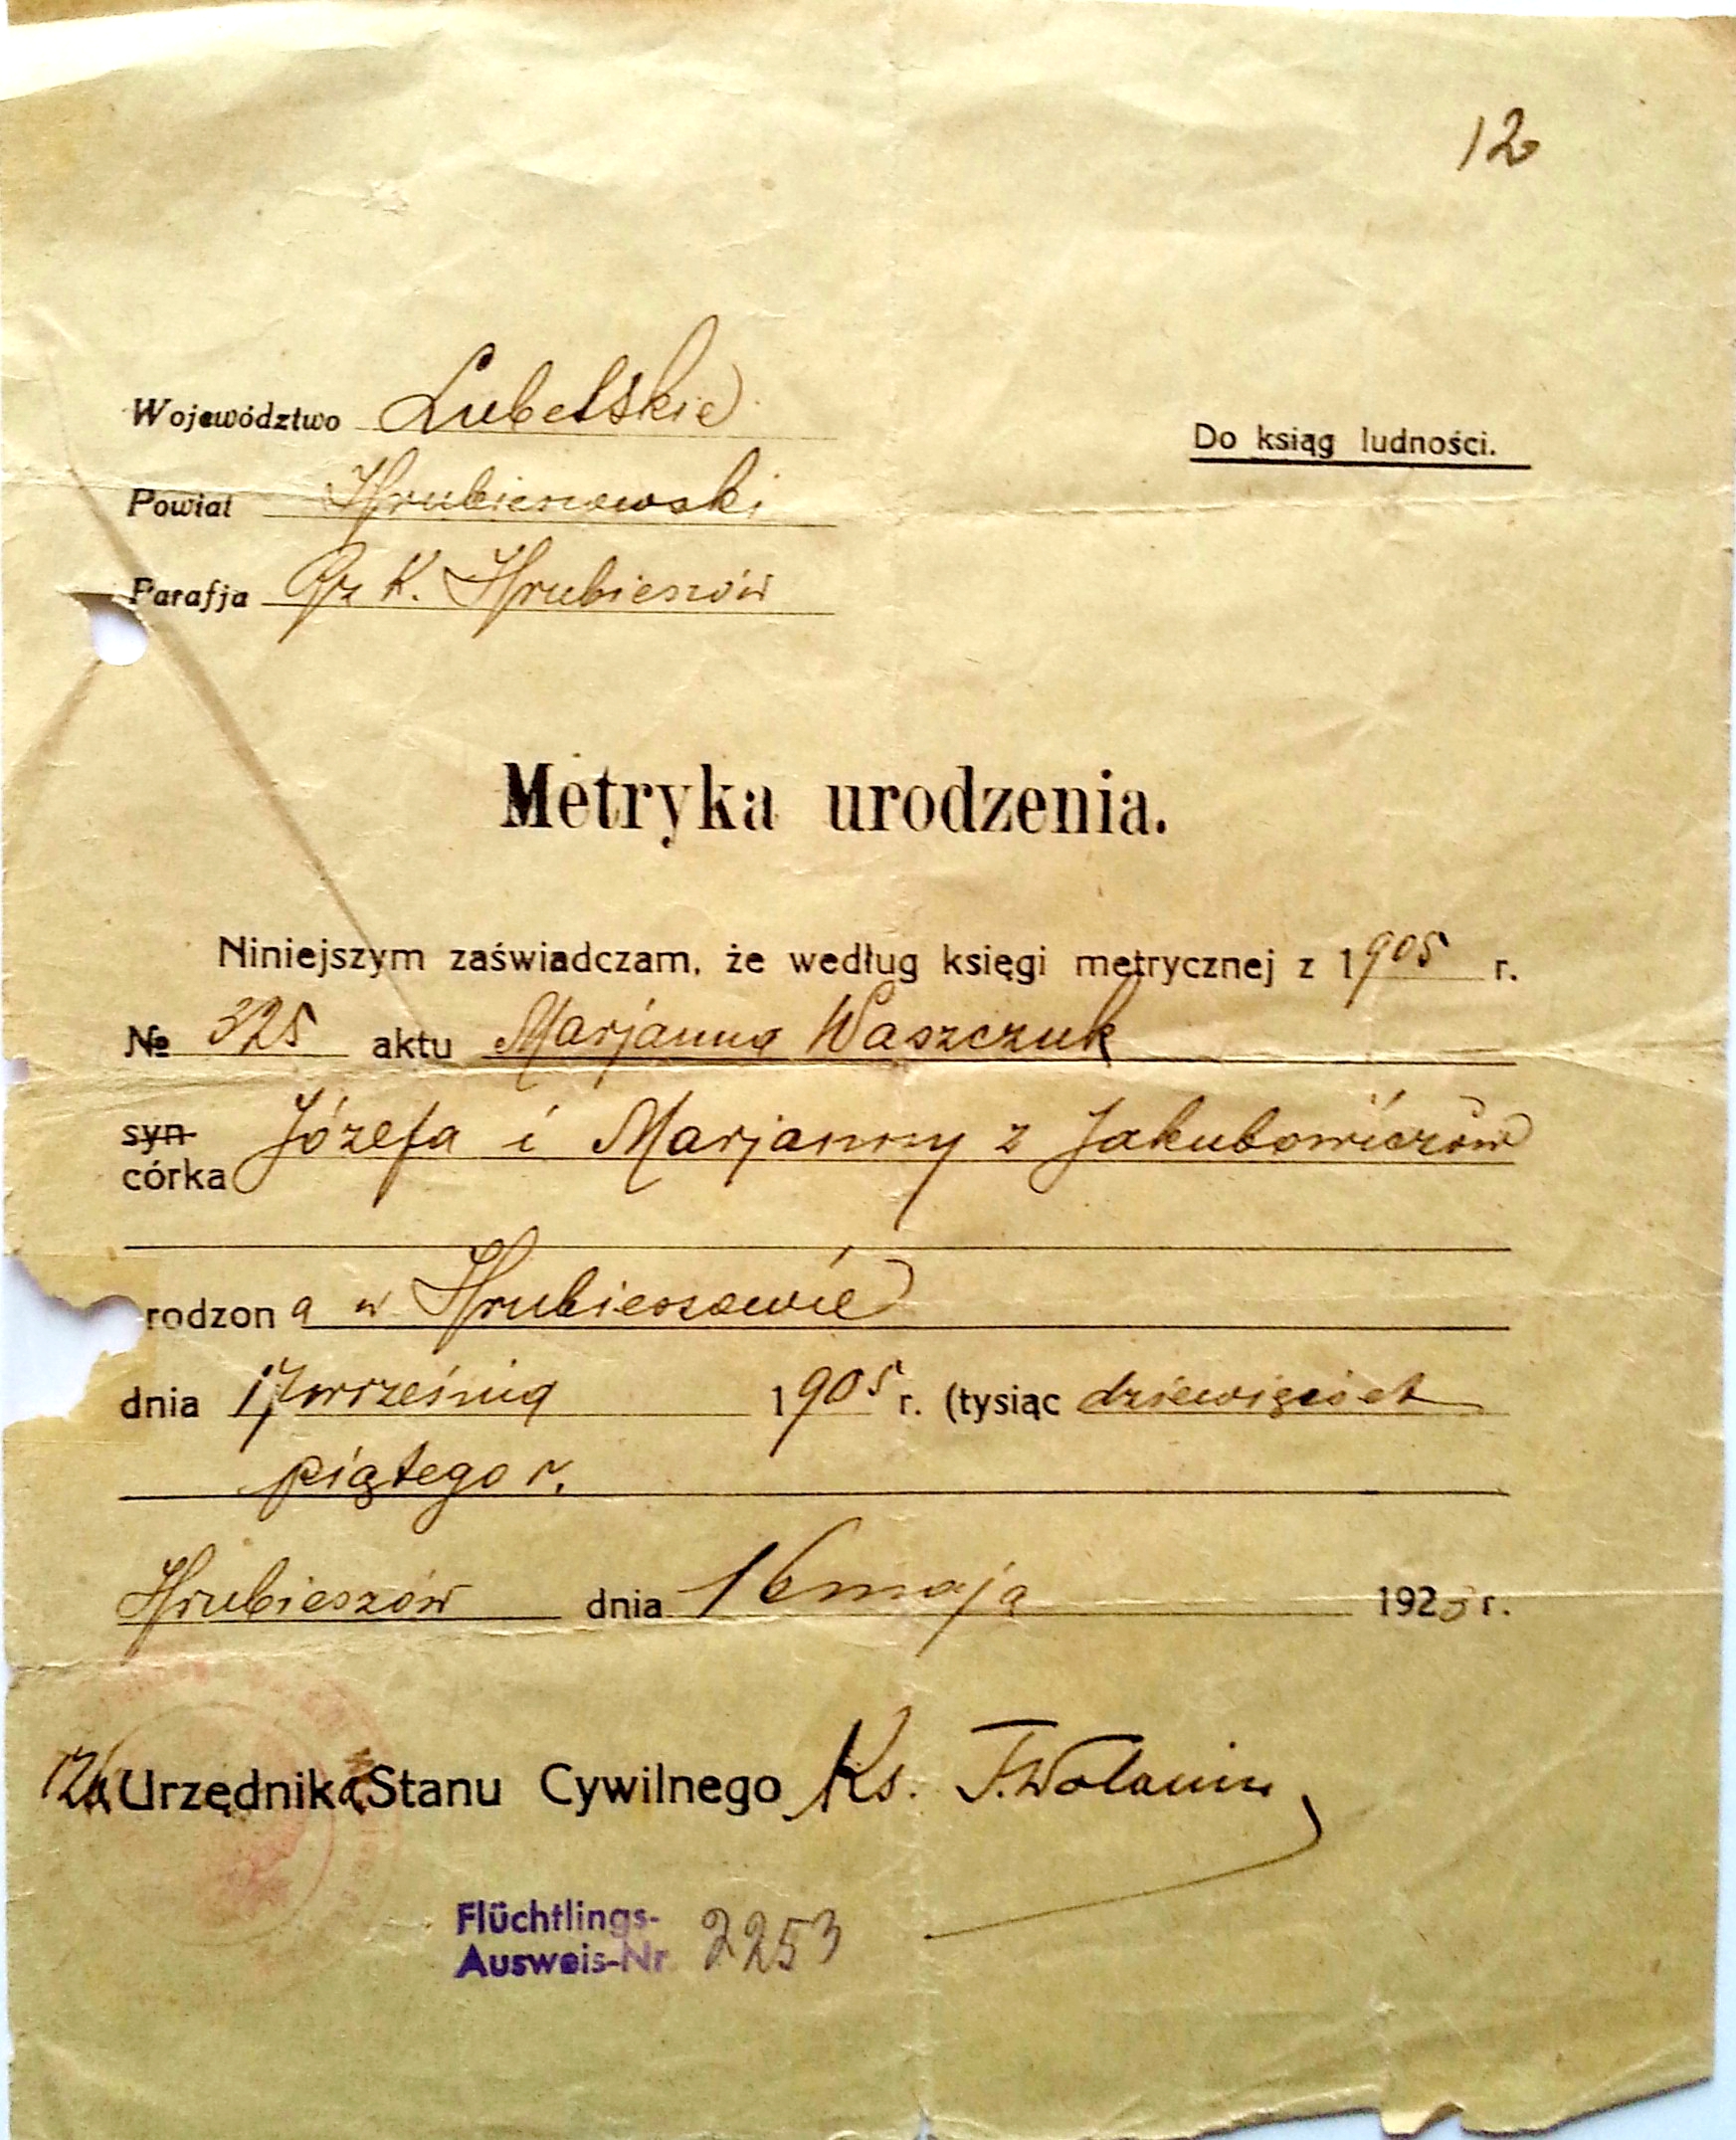 12
Województwo Lubelskie
Do ksiąg ludności.
Powiat Hrubieszowski
Parafja Rz K. Hrubieszów
Metryka urodzenia.
Niniejszym zaświadczam, że według księgi metrycznej z 1905 r.
№ 325 aktu Marjanna Waszczuk
syn
córka Józefa i Marjanny z Jakubowiczów
rodzona w Hrubieszowie
dnia 17 września 1905 r. (tysiąc dziewięćset
piątego r.
Hrubieszów dnia 16 maja 1923 r.
Urzędnika Stanu Cywilnego Ks. F. Wolanin
Flüchtlings-
Ausweis-Nr. 2253